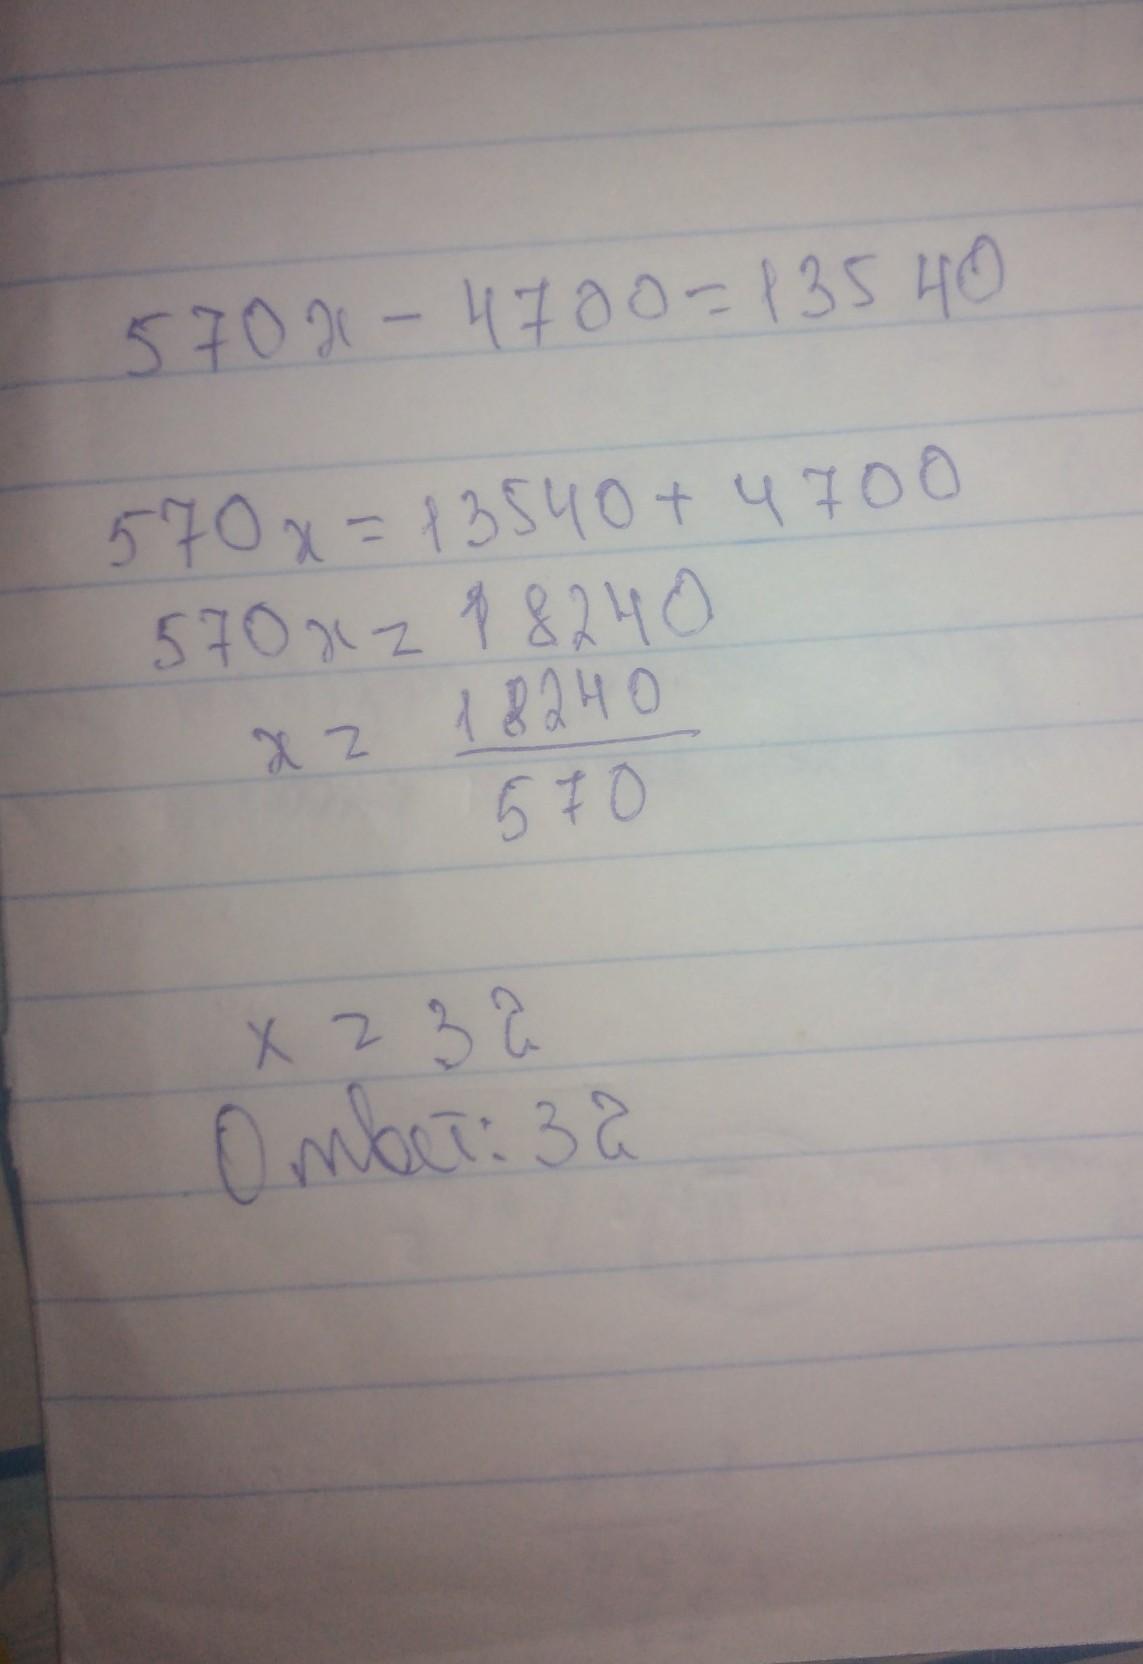 570x - 4700 = 13540
570x = 13540 + 4700
570x = 18240
x = 18240
570
x = 32
Ответ: 32